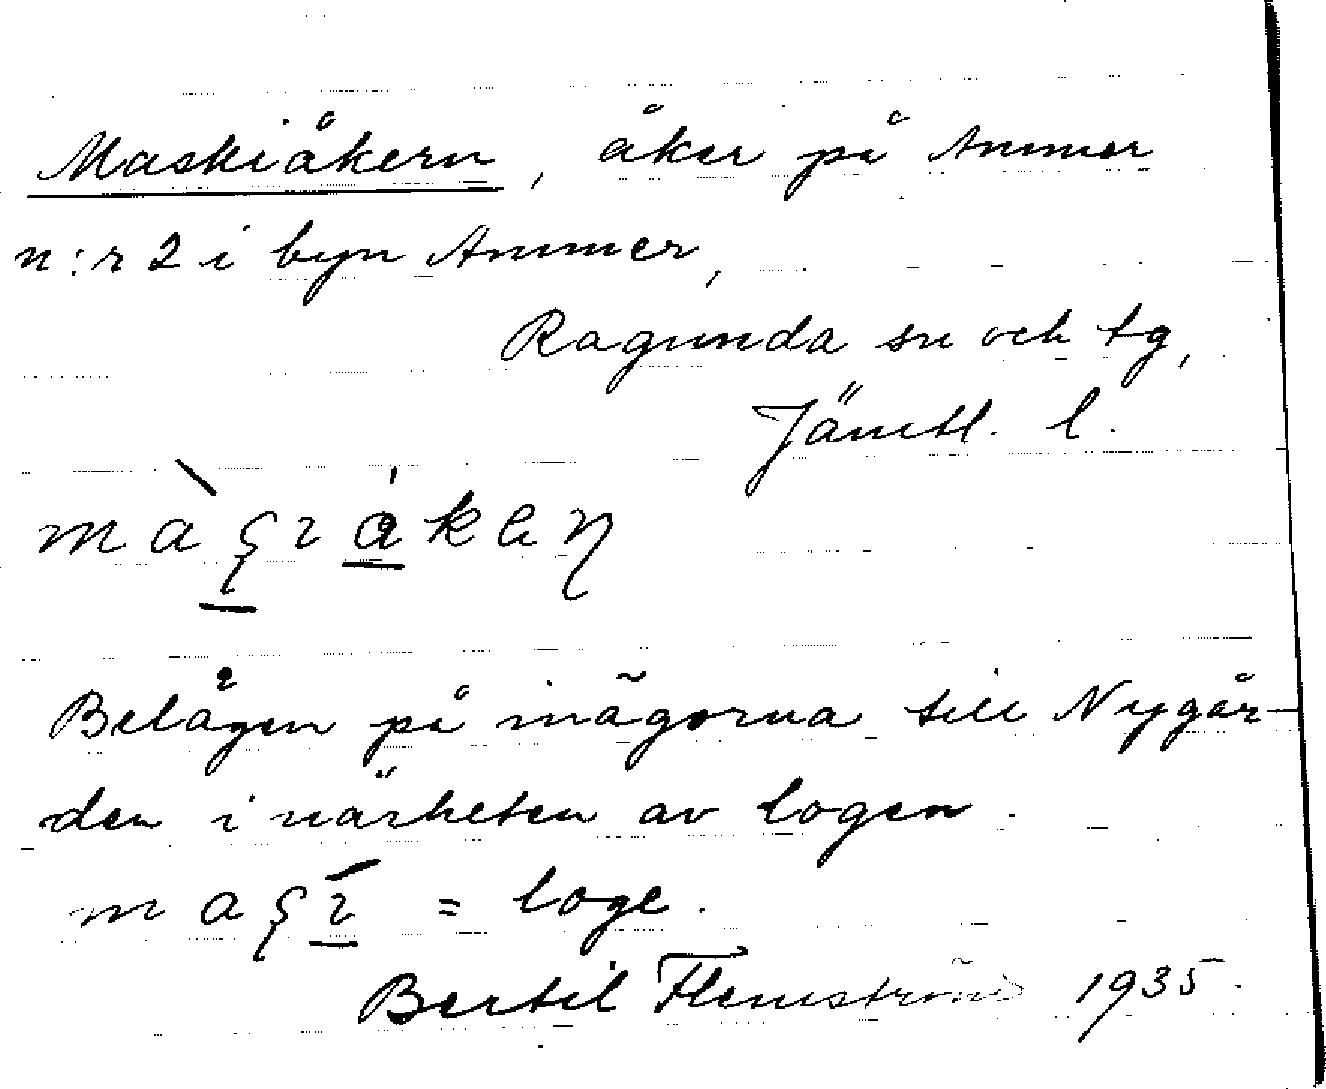 Maskiåkern, åker på Ammer
n:r 2 i byn Ammer,
Ragunda sn och tg,
Jämtl. l.
Belägen på inägorna till Nygår-
den i närheten av logen.
= loge.
Bertil Flemström 1935.